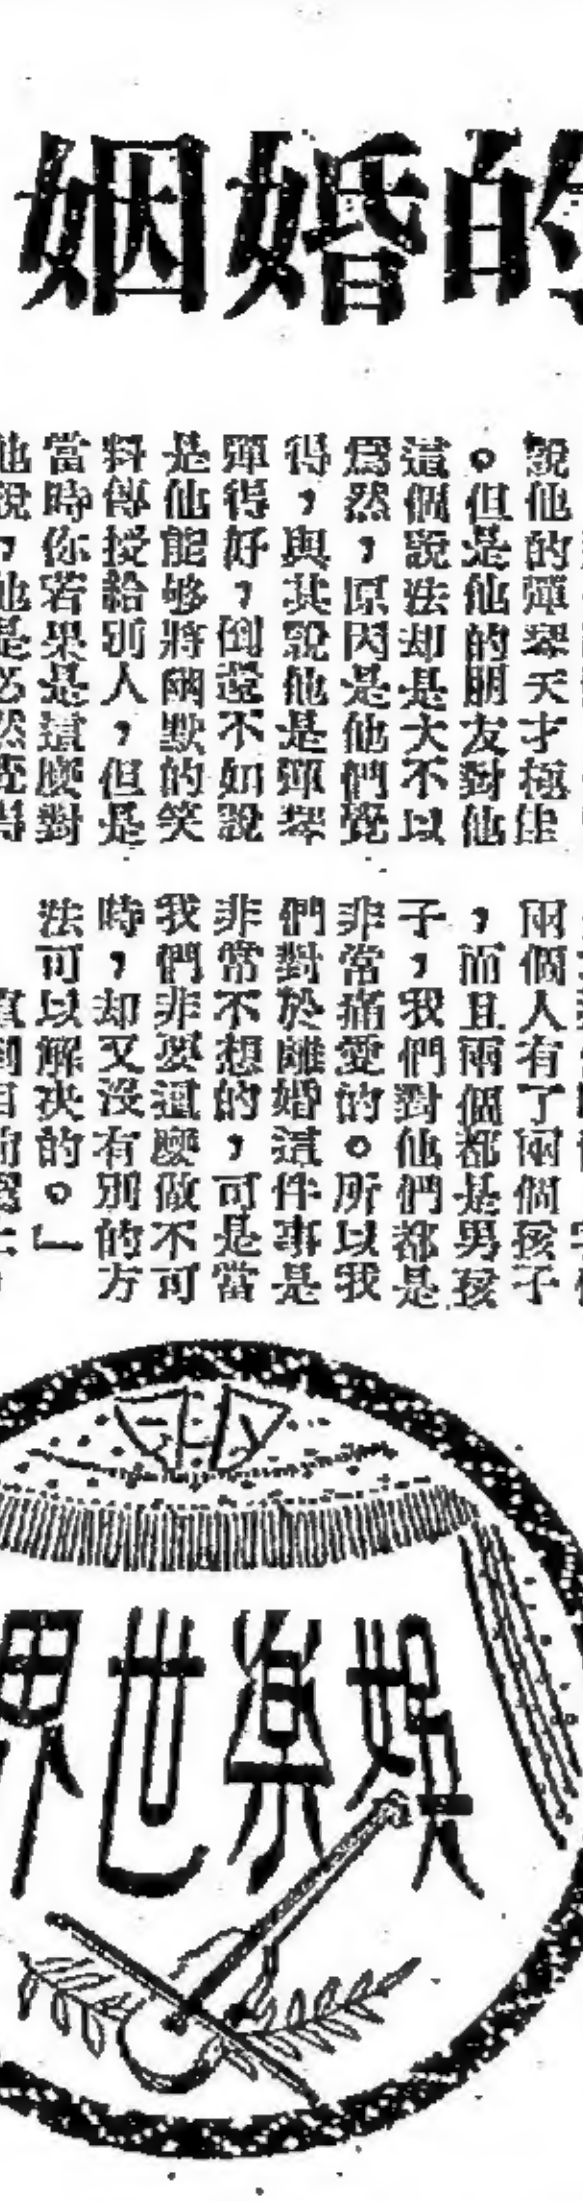 的婚姻
說他的彈琴天才極佳
。但是他的朋友對他
這個說法却是大不以
爲然，原因是他們覺
得，與其說他是彈琴
彈得好，倒還不如說
是他能够將幽默的笑
料傳授給別人，但是
當時你若果是這麼對
他說，他是必然覺得
兩個人有了兩個孩子
，而且兩個都是男孩
子，我們對他們都是
非常痛愛的。所以我
們對於離婚這件事是
非常不想的，可是當
我們非要這麼做不可
時，却又沒有別的方
法可以解决的。」
娛樂世界